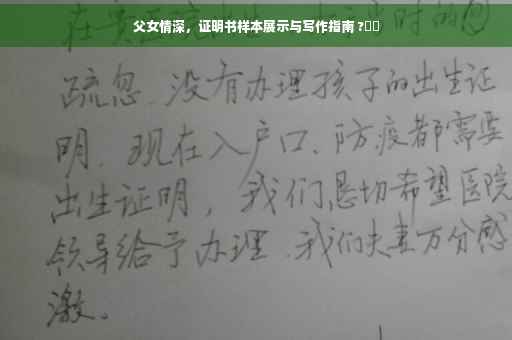 父女情深，证明书样本展示与写作指南 ?▯▯
在
疏忽.没有办理孩子的出生证
明.现在入户口、防疫都需要
出生证明，我们恳切希望医院
领导给予办理.我们夫妻万分感
激。